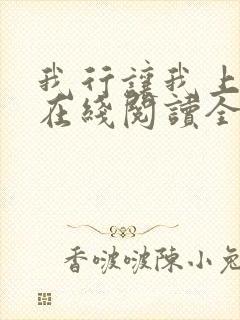 我行讓我上
在綫閱讀全
香啵啵陳小兔